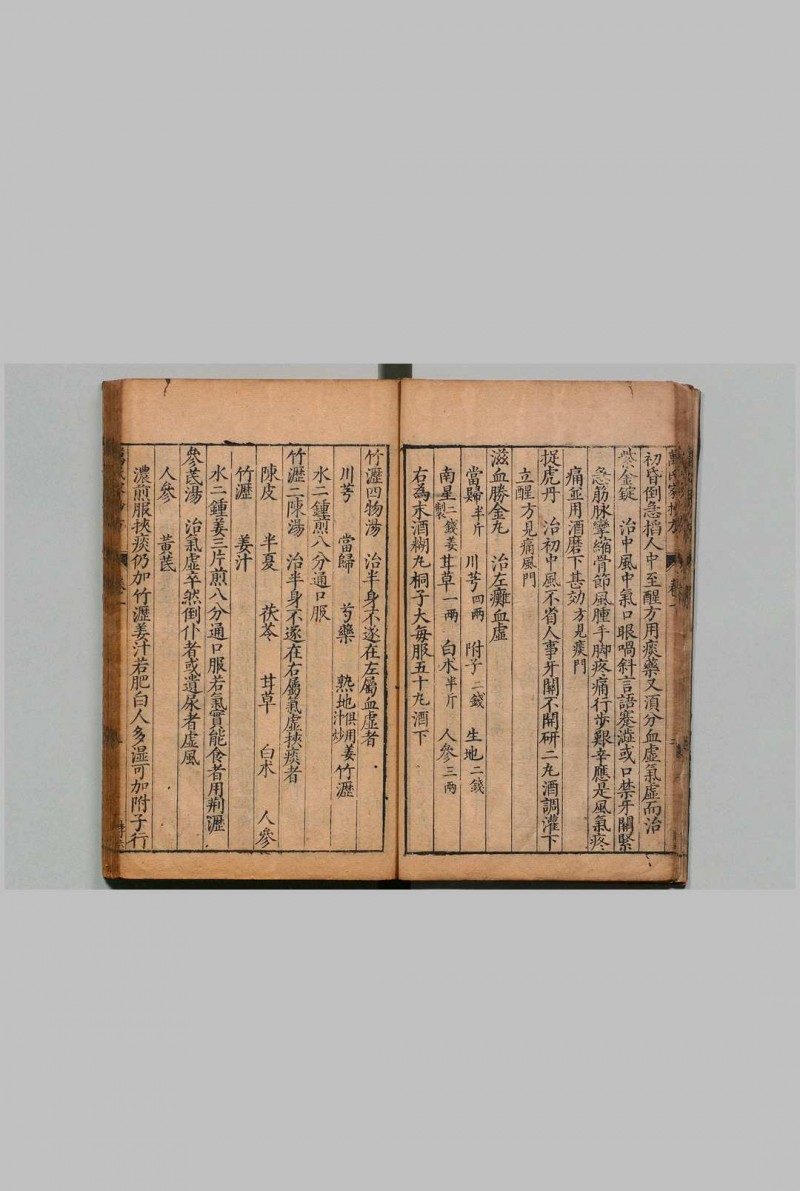 初昏倒急掐人中至醒方用痰藥又湏分血虛氣虛而治
紫金錠　治中風中氣口眼喎斜言語蹇澁或口禁牙關緊
急筋脉攣縮骨節風腫手脚疼痛行步艱辛應是風氣疼
痛並用酒磨下甚効方見痰門
捉虎丹　治初中風不省人事牙關不開研二丸酒調灌下
立醒方見痛風門
滋血勝金丸　治左癱血虛
當歸半斤　川芎四兩　附子二錢　生地二錢
南星二錢姜製　甘草一兩　白朮半斤　人參三兩
右為末酒糊丸桐子大每服五十丸酒下
竹瀝四物湯　治半身不遂在左屬血虛者
川芎　當歸　芍藥　熟地俱用姜汁炒　竹瀝
水二鍾煎八分通口服
竹瀝二陳湯　治半身不遂在右屬氣虛挾痰者
陳皮　半夏　茯苓　甘草　白朮　人參
竹瀝　姜汁
水二鍾姜三片煎八分通口服若氣實能食者用荆瀝
參芪湯　治氣虛卒然倒仆者或遺尿者虛風
人參　黃芪
濃煎服挾痰仍加竹瀝姜汁若肥白人多濕可加附子行